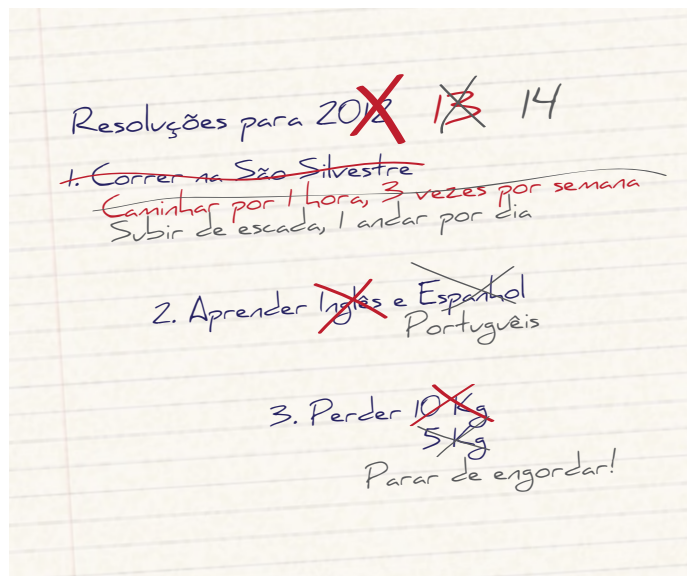 Resoluções para 2012 13 14
1. Correr na São Silvestre
Caminhar por 1 hora, 3 vezes por semana
Subir de escada, 1 andar por dia
2. Aprender Inglês e Espanhol
Portuguêis
3. Perder 10 Kg
5 Kg
Parar de engordar!